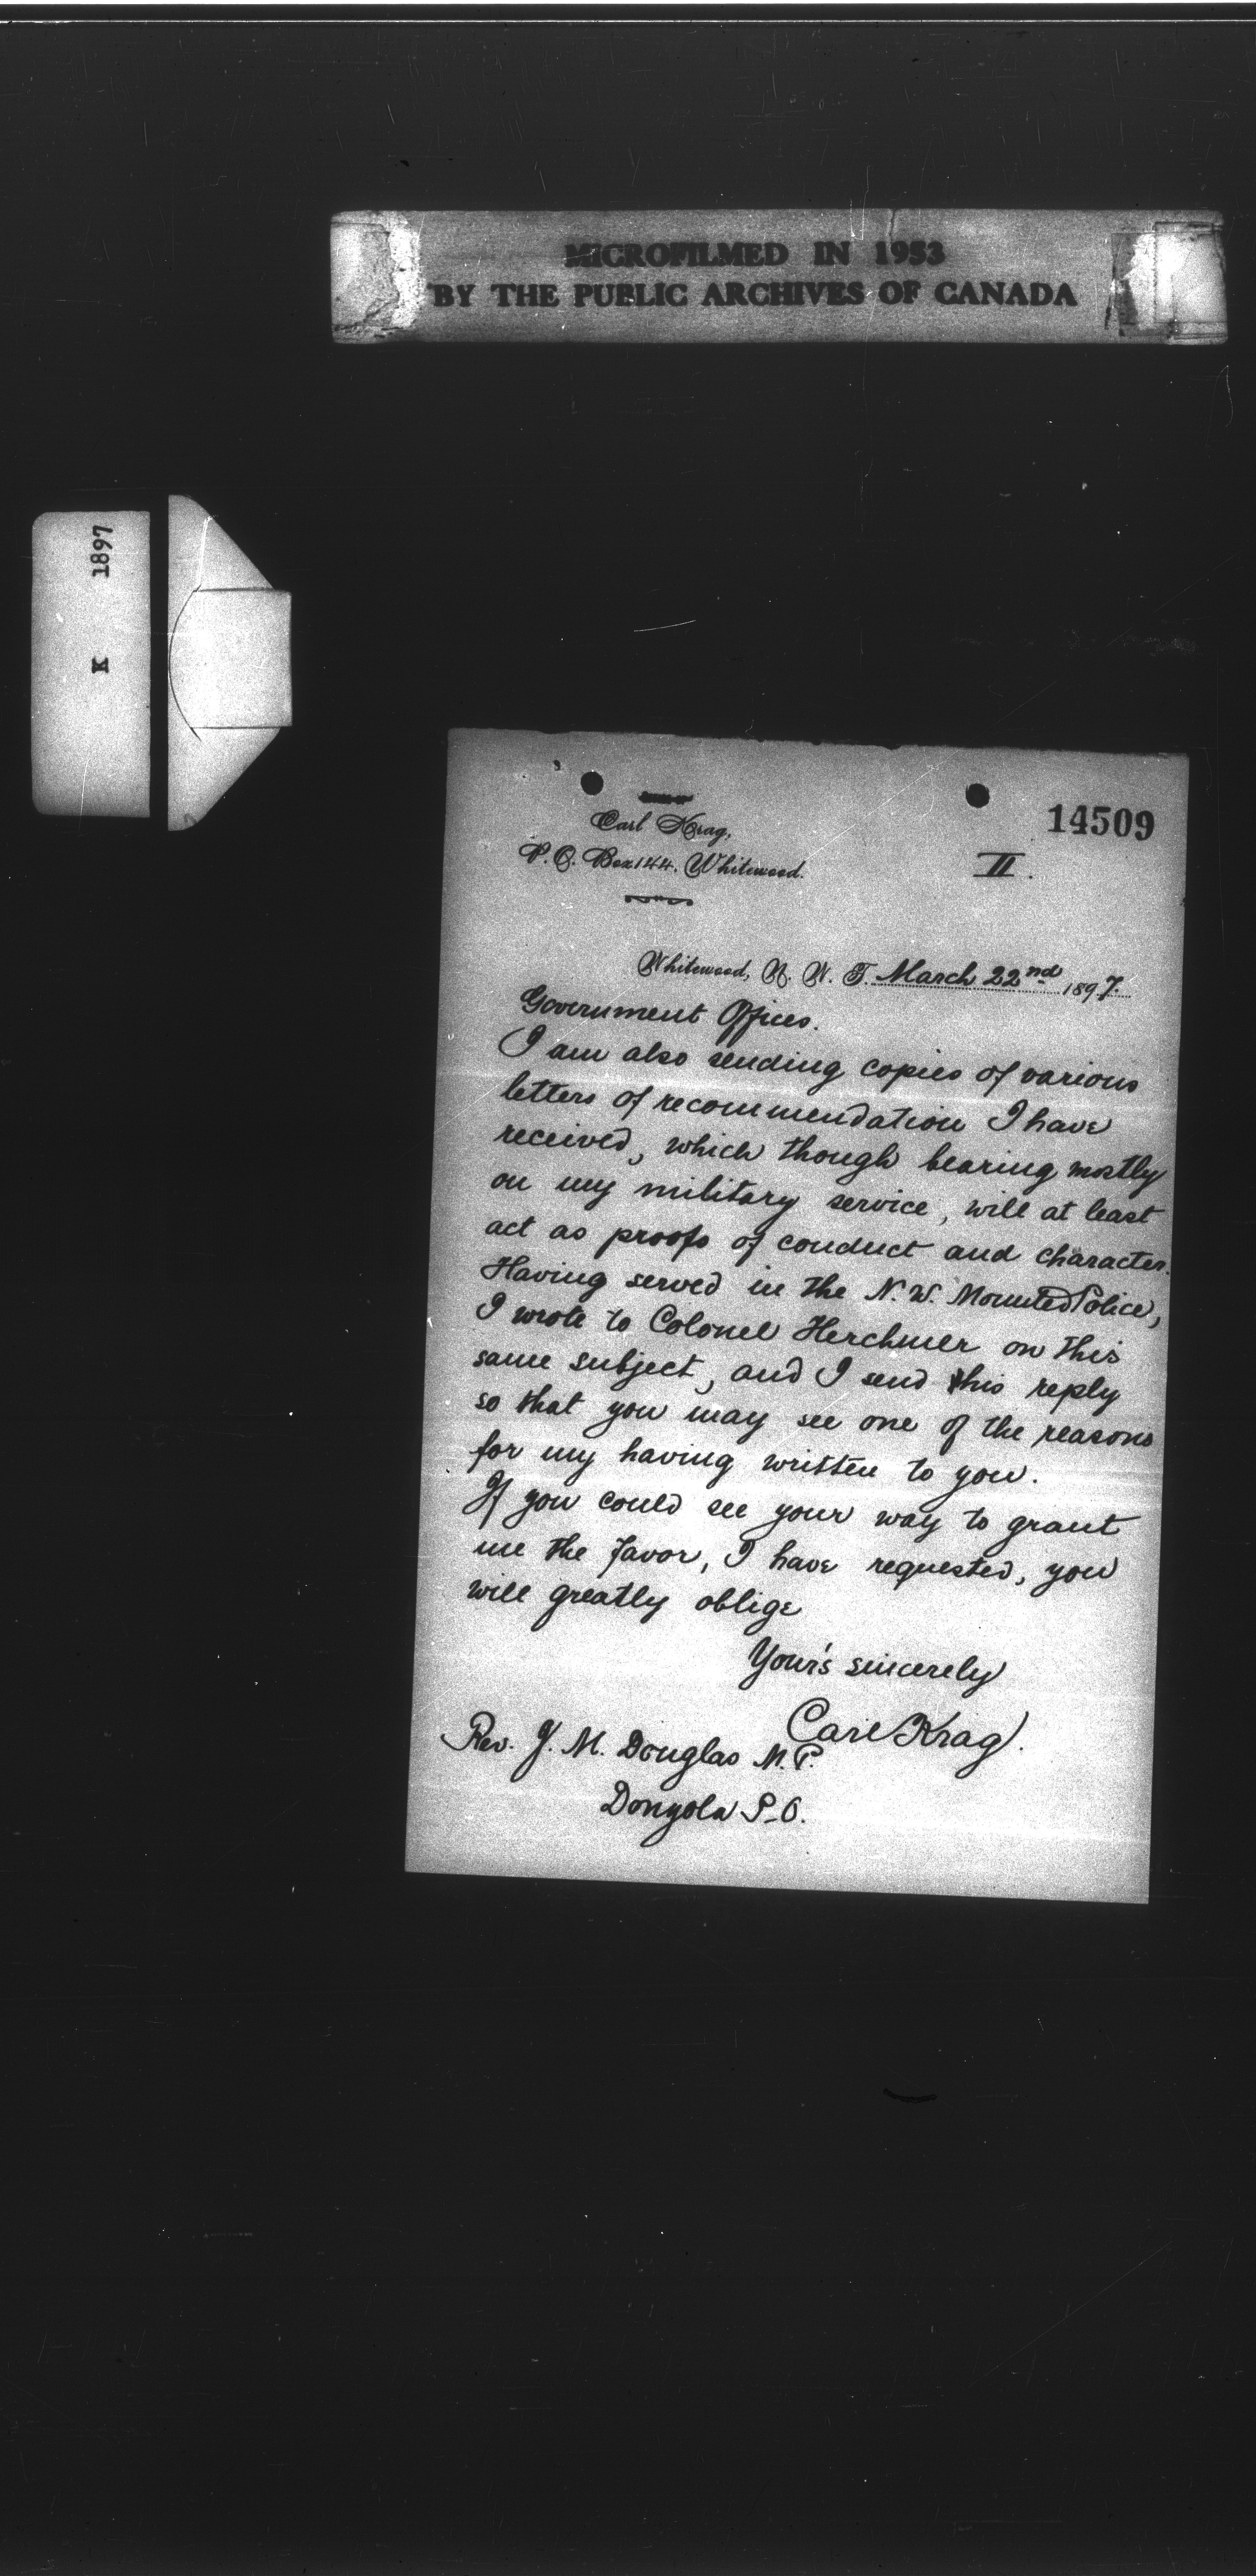 MICROFILMED IN 1953
BY THE PUBLIC ARCHIVES OF CANADA
K 1897
14509
Carl Krag,
P. O. Box 144, Whitewood.
II.
Whitewood, N. W. T. March 22nd 1897.
Government Offices.
I am also sending copies of various
letters of recommendation I have
received, which though bearing mostly
on my military service, will at least
act as proofs of conduct and character.
Having served in the N. W. Mounted Police,
I wrote to Colonel Herchmer on this
same subject, and I send this reply
so that you may see one of the reasons
for my having written to you.
If you could see your way to grant
me the favor, I have requested, you
will greatly oblige
Your's sincerely
Carl Krag.
Rev. J. M. Douglas M. P.
Dongola P. O.